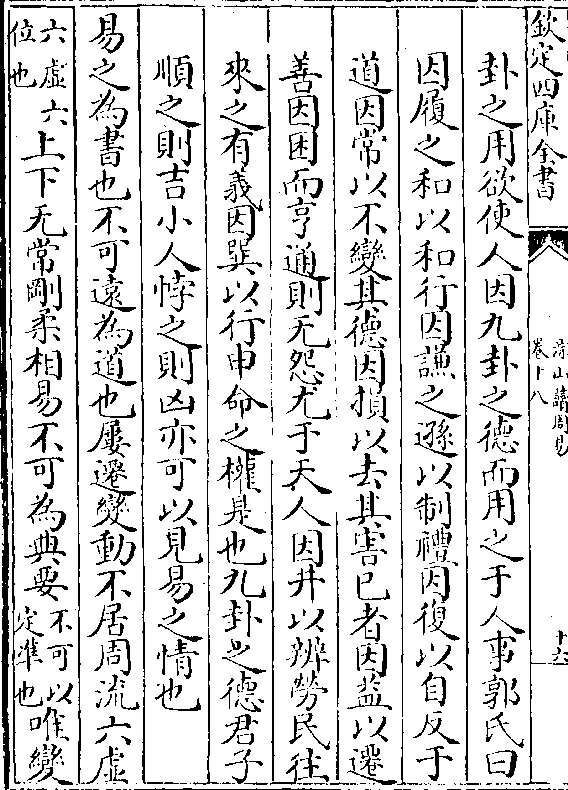 欽定四庫全書
淙山讀周易
卷十八
十六
卦之用欲使人因九卦之德而用之于人事郭氏曰
因履之和以和行因謙之遜以制禮因復以自反于
道因常以不變其德因損以去其害已者因益以遷
善因困而亨通則无怨尤于天人因井以辨勞民往
來之有義因巽以行申命之權是也九卦之德君子
順之則吉小人悖之則凶亦可以見易之情也
易之為書也不可遠為道也屢遷變動不居周流六虛
六虛六位也上下无常剛柔相易不可為典要不可以定準也唯變